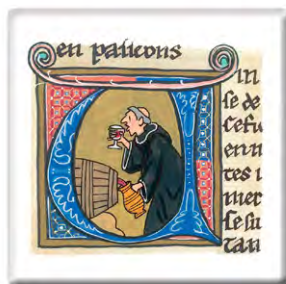 en palicons
in
se de
cefu
en n
tes i
mer
se su
tan